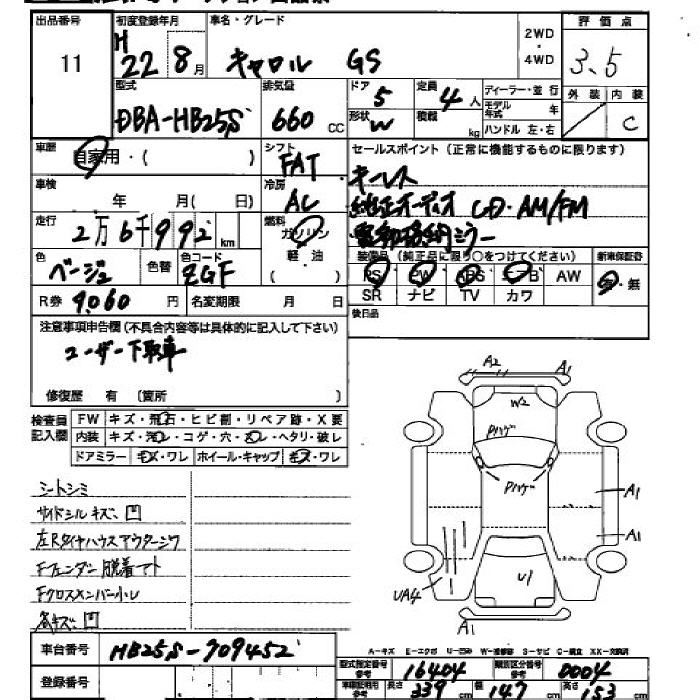 出品番号 初度登録年月 車名・グレード 2WD・4WD 評価点
11 H 22 8月 キャロル GS 3.5
型式 排気量 ドア 定員 ディーラー・並行 外装 内装
DBA-HB25S 660 CC 5 4人 モデル年式 年 C
形状 W 積載 kg ハンドル 左・右
車歴 自家用・( ) シフト FAT セールスポイント(正常に機能するものに限ります)
車検 年 月( 日) 冷房 AC キーレス
走行 2万6千992km 燃料 ガソリン 軽油 ( ) 純正オーディオ CD・AM/FM
電動格納ミラー
色 ベージュ 色替 色コード ZGF 装備品(純正品に限り○をつけてください) 新車保証書
PS PW ABS AW 有・無
SR ナビ TV カワ
R券 9,060円 名変期限 月 日 後日品
注意事項申告欄(不具合内容等は具体的に記入して下さい)
ユーザー下取車
修復歴 有 〔箇所 〕
検査員記入欄 FW キズ・飛石・ヒビ割・リペア跡・X要
内装 キズ・汚れ・コゲ・穴・スレ・ヘタリ・破レ
ドアミラー キズ・ワレ ホイール・キャップ キズ・ワレ
A2 A1
W2
A1
A1
UA4 U1
A1
シートシミ
サイドシルキズ・凹
左Rタイヤハウスアウターシワ
Fフェンダー脱着アト
Fクロスメンバー小レ
各キズ・凹
車台番号 HB25S-709452
登録番号
型式指定番号 参考 16404 類別区分番号 参考 0004
長さ 339cm 幅 147cm 高さ 153cm